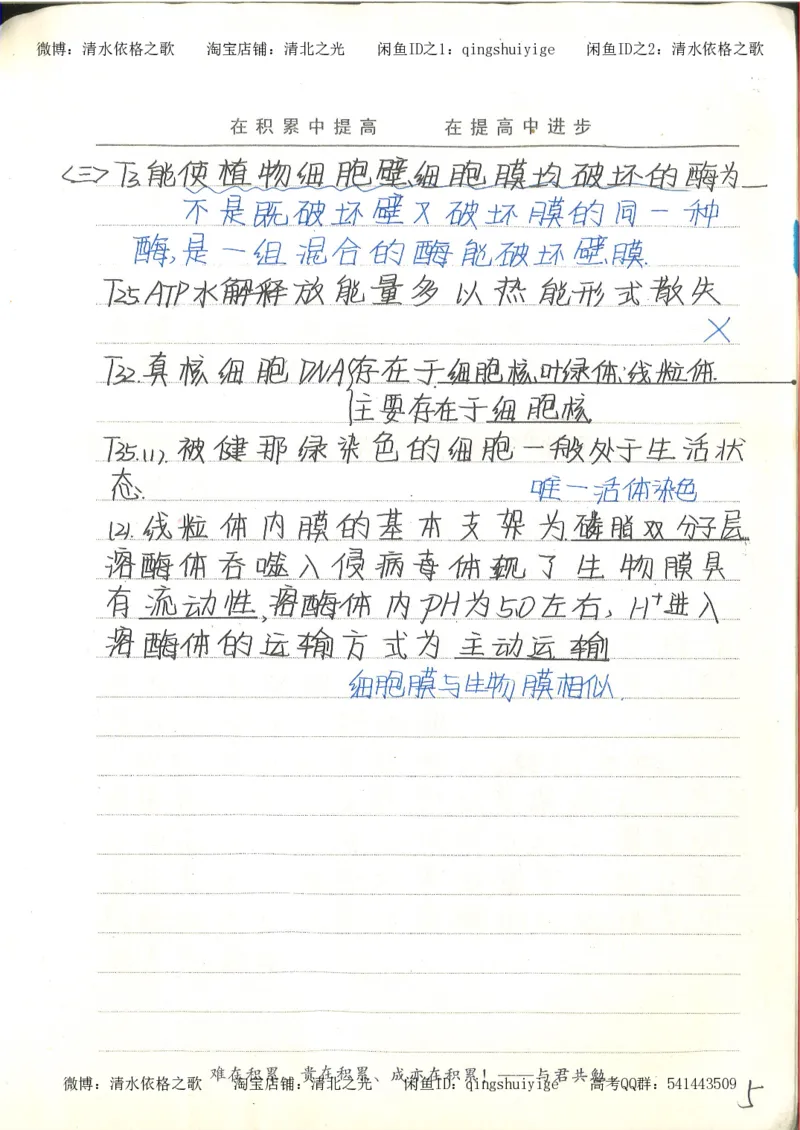 微博：清水依格之歌 淘宝店铺：清北之光 闲鱼ID之1：qingshuiyige 闲鱼ID之2：清水依格之歌
在积累中提高 在提高中进步
<三> T3.能使植物细胞壁细胞膜均破坏的酶为__
不是既破坏壁又破坏膜的同一种
酶,是一组混合的酶能破坏壁、膜.
T25.ATP水解释放能量多以热能形式散失
×
T32.真核细胞DNA{存在于细胞核、叶绿体、线粒体.
主要存在于细胞核
T35.(1).被健那绿染色的细胞一般处于生活状
态.
唯一活体染色
(2).线粒体内膜的基本支架为磷脂双分子层.
溶酶体吞噬入侵病毒体现了生物膜具
有流动性,溶酶体内PH为5.0左右, H⁺进入
溶酶体的运输方式为主动运输
细胞膜与生物膜相似.
难在积累、贵在积累、成亦在积累！——与君共勉
微博：清水依格之歌 淘宝店铺：清北之光 闲鱼ID：qingshuiyige 高考QQ群：541443509
5